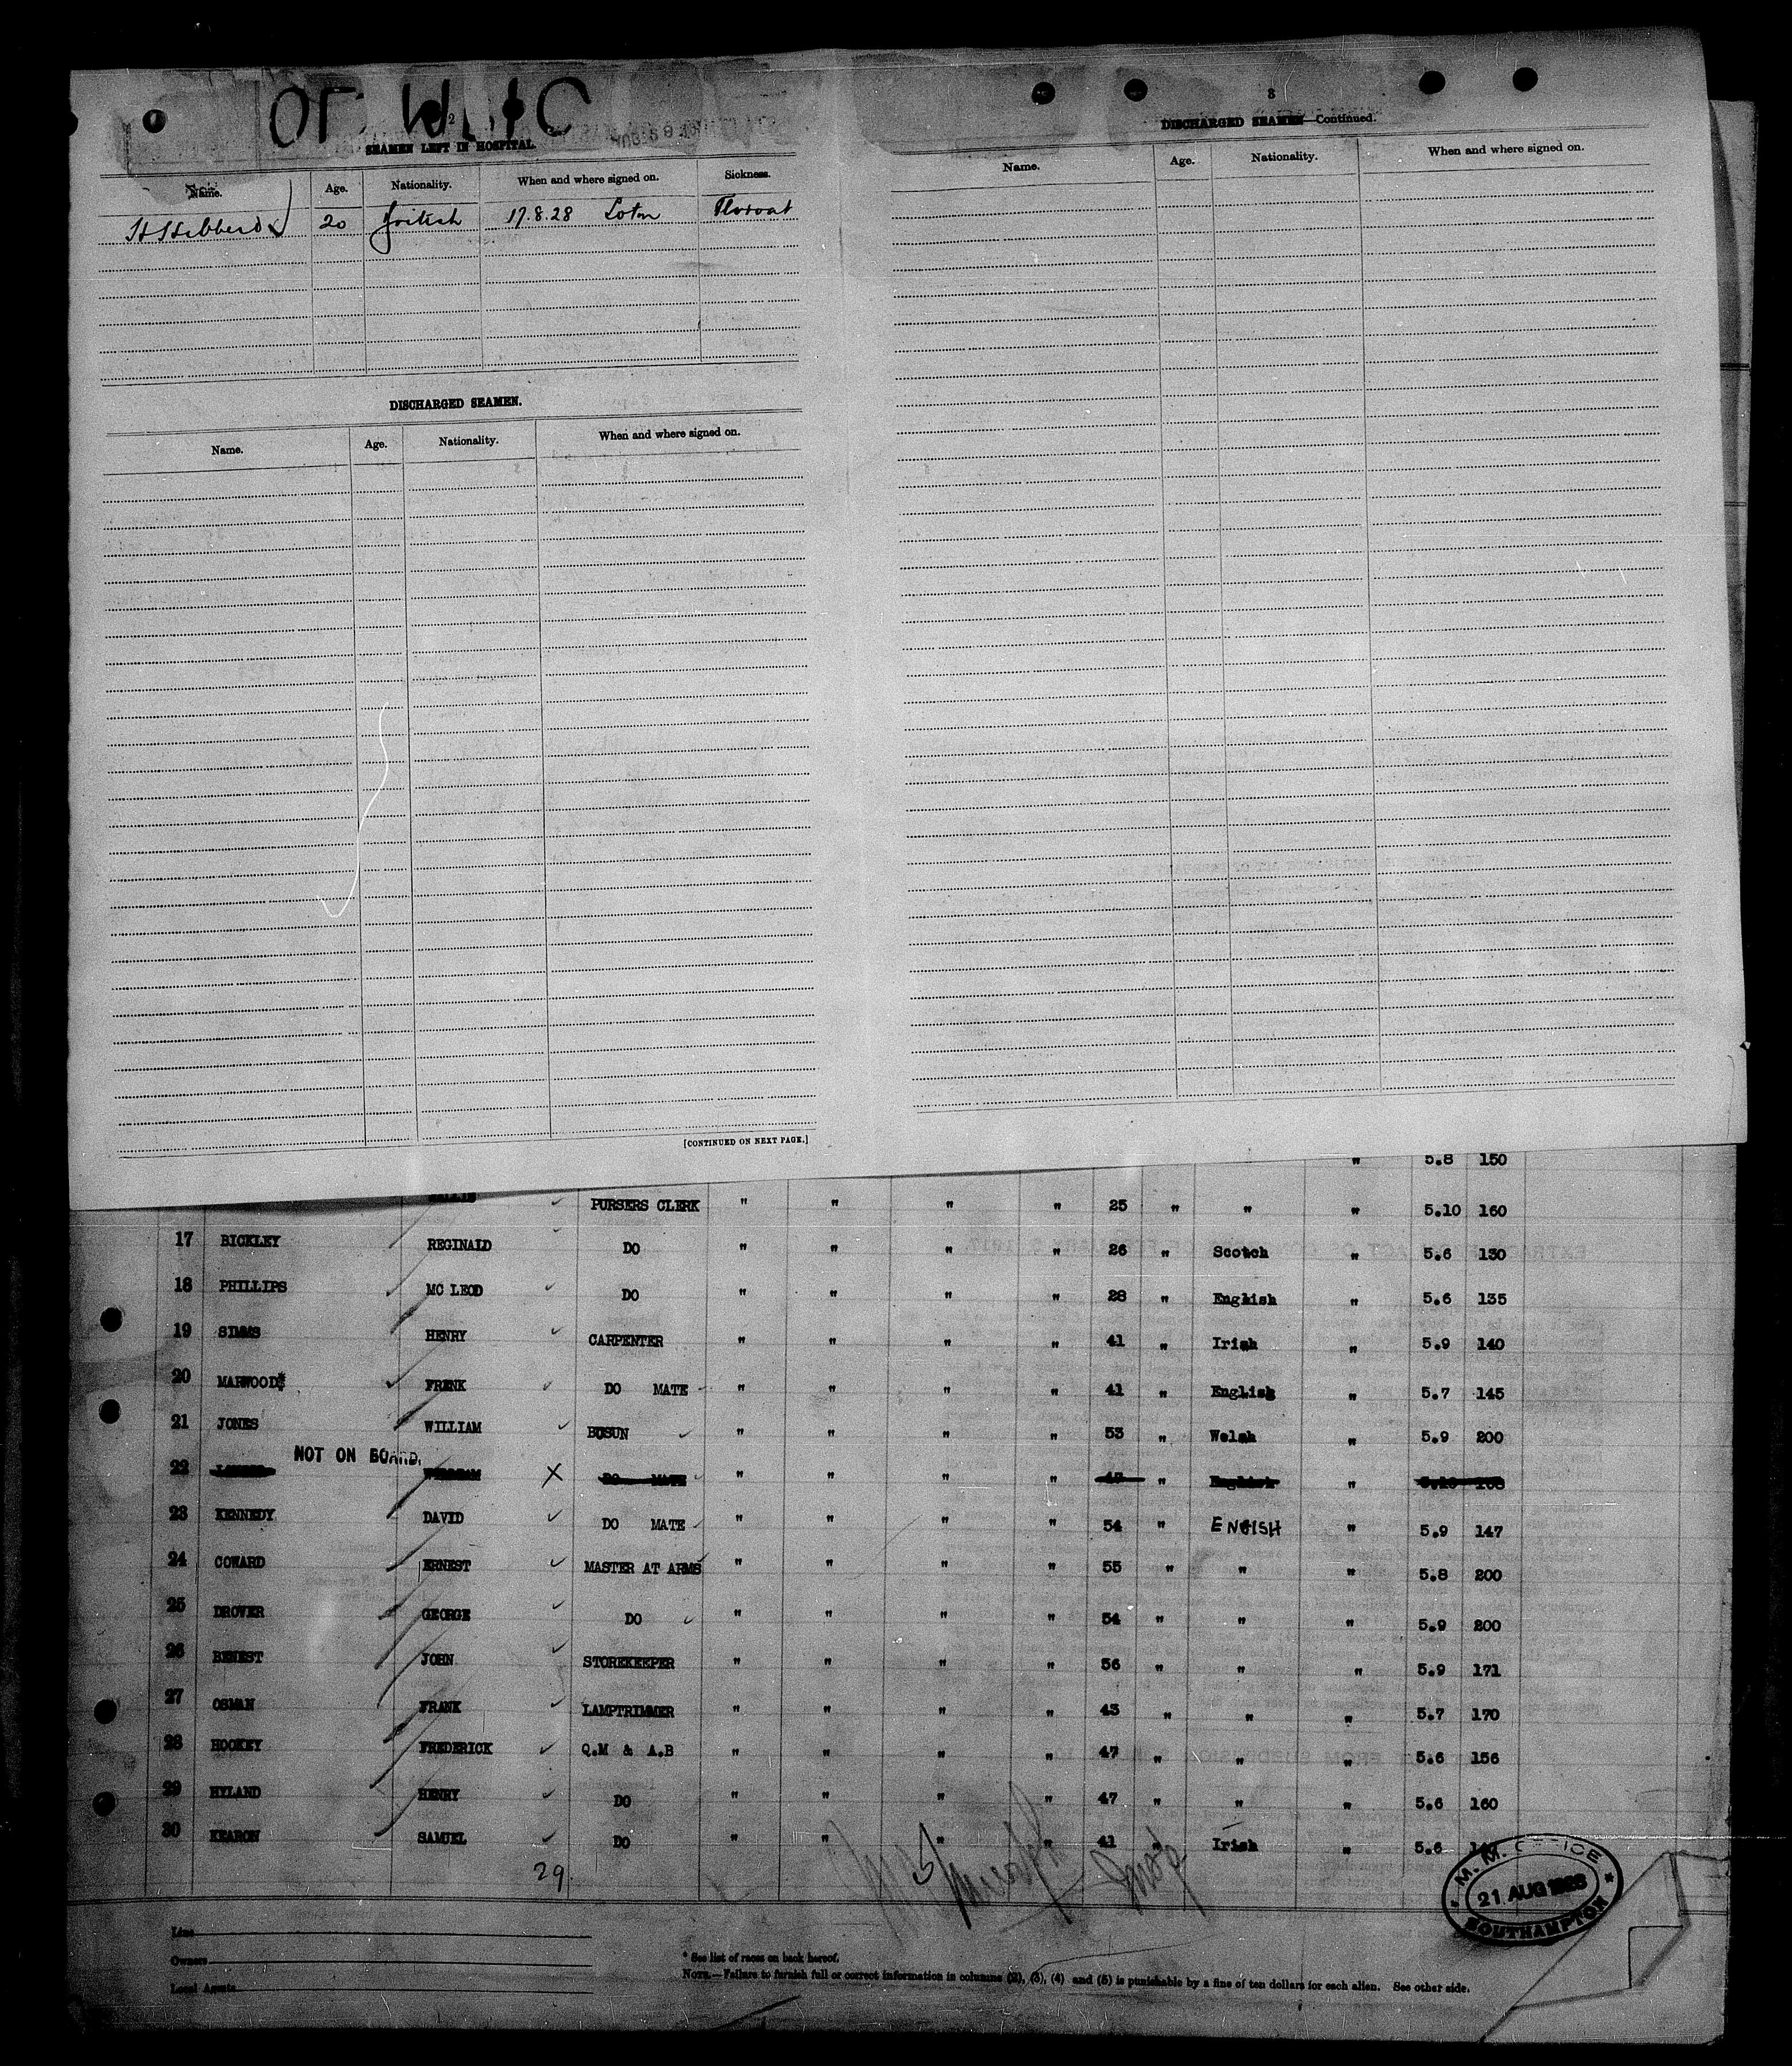 2
SEAMEN LEFT IN HOSPITAL.
Name. Age. Nationality. When and where signed on. Sickness.
20 British 17.8.28 Soton
DISCHARGED SEAMEN.
Name. Age. Nationality. When and where signed on.
[CONTINUED ON NEXT PAGE.]
3
DISCHARGED SEAMEN—Continued.
Name. Age. Nationality. When and where signed on.
" 5.8 150
PURSERS CLERK " " " " 25 " " " 5.10 160
17 BICKLEY REGINALD DO " " " " 26 " Scotch " 5.6 130
18 PHILLIPS MC LEOD DO " " " " 28 " English " 5.6 135
19 SIMMS HENRY CARPENTER " " " " 41 " Irish " 5.9 140
20 MARWOOD FRENK DO MATE " " " " 41 " English " 5.7 145
21 JONES WILLIAM BOSUN " " " " 53 " Welsh " 5.9 200
NOT ON BOARD.
22 WILLIAM X DO MATE " " " " 47 " English "
23 KENNEDY DAVID DO MATE " " " " 54 " ENGISH " 5.9 147
24 COWARD ERNEST MASTER AT ARMS " " " " 55 " " " 5.8 200
25 DROVER GEORGE DO " " " " 54 " " " 5.9 200
26 BENEST JOHN STOREKEEPER " " " " 56 " " " 5.9 171
27 OSMAN FRANK LAMPTRIMMER " " " " 43 " " " 5.7 170
28 HOOKEY FREDERICK Q.M & A.B " " " " 47 " " " 5.6 156
29 HYLAND HENRY DO " " " " 47 " " " 5.6 160
30 KEARON SAMUEL DO " " " " 41 " Irish " 5.6
29
M.M. OFFICE
21 AUG 1928
SOUTHAMPTON
Line
Owners
Local Agents
* See list of races on back hereof.
NOTE.—Failure to furnish full or correct information in columns (2), (3), (4) and (5) is punishable by a fine of ten dollars for each alien. See other side.